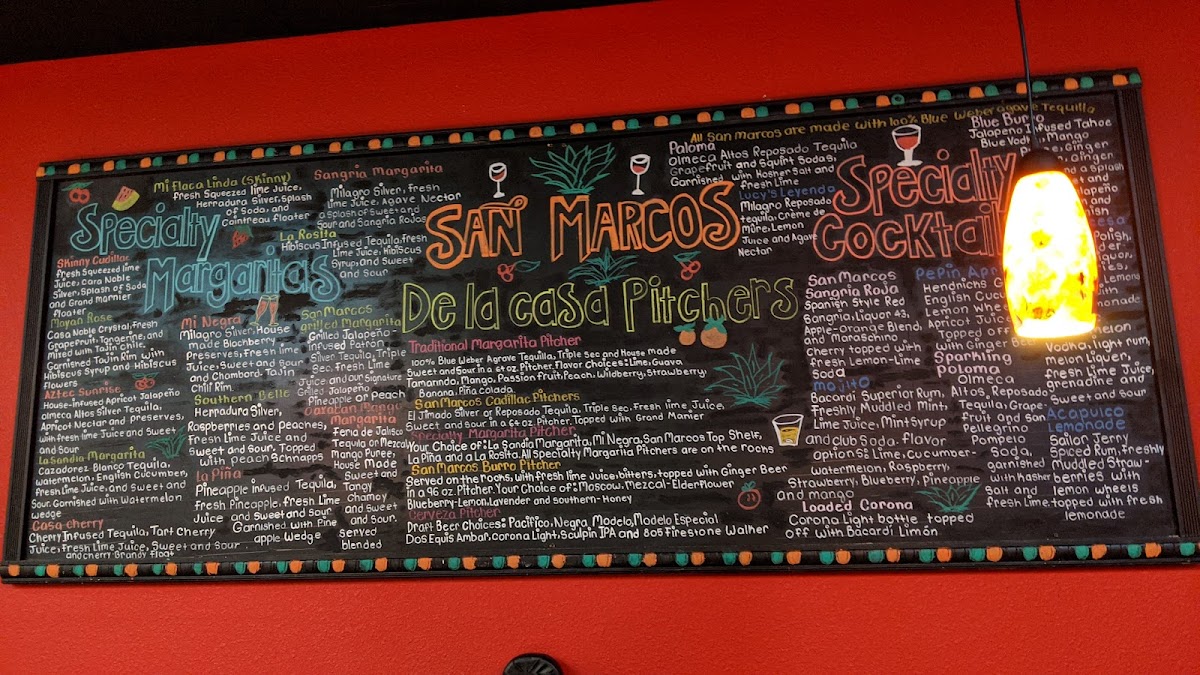 All San Marcos are made with 100% Blue Weber agave Tequilla
Specialty
Margaritas
Mi Flaca Linda (Skinny)
Fresh Squeezed lime Juice,
Herradura Silver, Splash
of Soda, and
Cointreau floater
Sangria Margarita
Milagro Silver, Fresh
lime Juice, Agave Nectar
a splash of Sweet and
Sour and Sangria Rojas
La Rosita
Hibiscus Infused Tequila, fresh
Lime Juice, Hibiscus
Syrup, and Sweet
and Sour
Skinny Cadillac
Fresh Squeezed lime
Juice, Cara Noble
Silver, Splash of Soda
and Grand Marnier
Floater
Mayan Rose
Casa Noble Crystal, Fresh
Grapefruit, Tangerine, and
Mixed with Tajin Chile.
Garnished Tajin Rim with
Hibiscus Syrup and Hibiscus
Flowers
Aztec Sunrise
House-infused Apricot Jalapeño
Olmeca Altos Silver Tequila,
Apricot Nectar and preserves,
with fresh lime Juice and Sweet
and Sour
La Sandia Margarita
Cazadorez Blanco Tequila,
Watermelon, English Cucumber,
Fresh Lime Juice, and Sweet and
Sour. Garnished with Watermelon
wedge
Casa-cherry
Cherry Infused Tequila, Tart Cherry
Juice, Fresh Lime Juice, Sweet and Sour
and cherry Brandy float
Mi Negra
Milagro Silver, House
made Blackberry
Preserves, fresh lime
Juice, Sweet and Sour
and Chambord, Tajin
Chili Rim.
Southern Belle
Herradura Silver,
Raspberries and Peaches,
Fresh Lime Juice and
Sweet and Sour. Topped
with Peach Schnapps
La Piña
Pineapple infused Tequila,
Fresh Pineapple, Fresh Lime
Juice and Sweet and Sour
Garnished with Pine
apple Wedge
San Marcos
Grilled Margarita
Grilled Jalapeño-
infused Patron
Silver Tequila, Triple
Sec, Fresh Lime
Juice and our Signature
Grilled Jalapeño,
Pineapple or Peach
Caraban Mango
Margarita
Feria de Jalisco
Tequila or Mezcal
Mango Puree,
House Made
Sweet and Sour
Tangy
Chamoy
and Sweet
and Sour.
Served
blended
San Marcos
De la casa Pitchers
Traditional Margarita Pitcher
100% Blue Weber Agave Tequilla, Triple Sec and House made
Sweet and Sour in a 60oz. Pitcher. Flavor Choices: Lime, Guava
Tamarindo, Mango, Passion fruit, Peach, Wildberry, Strawberry,
Banana, Piña colada
San Marcos Cadillac Pitchers
El Jimado Silver or Reposado Tequila, Triple Sec, Fresh lime Juice,
Sweet and Sour in a 60oz Pitcher. Topped with Grand Marnier
Specialty Margarita Pitcher
Your Choice of: La Sandia Margarita, Mi Negra, San Marcos Top Shelf,
La Piña and a La Rosita. All specialty Margarita Pitchers are on the rocks
San Marcos Burro Pitcher
Served on the rocks, with fresh lime Juice, bitters, topped with Ginger Beer
in a 96 oz. Pitcher. Your Choice of: Moscow, Mezcal-Elderflower
Blueberry-Lemon, Lavender and southern-Honey
Cerveza Pitcher
Draft Beer Choices: Pacifico, Negra Modelo, Modelo Especial
Dos Equis Ambar, Corona Light, Sculpin IPA and 805 Firestone Walker
Specialty
Cocktail
Paloma
Olmeca Altos Reposado Tequila
Grapefruit and Squirt Sodas,
Garnished with Kosher Salt and
fresh Lime
Lucy's Leyenda
Milagro Reposado
tequila, Crème de
Mûre, Lemon
Juice and Agave
Nectar
San Marcos
Sangria Roja
Spanish Style Red
Sangria, Liquor 43,
Apple-Orange Blend,
and Maraschino
Cherry topped with
Fresh Lemon-Lime
Soda
Mojito
Bacardi Superior Rum,
Freshly Muddled Mint,
Lime Juice, Mint Syrup
and club Soda. flavor
options: Lime, Cucumber-
Watermelon, Raspberry,
Strawberry, Blueberry, Pineapple
and mango
Loaded Corona
Corona Light bottle topped
off with Bacardi Limón.
Blue Burro
Jalapeño Infused Tahoe
Blue Vodka, Mango
Ginger
Pepin, Apr
Hendricks G
English Cucu
Lemon Whe
Apricot Juic
topped off
with Ginger
Sparkling
Paloma
Olmeca
Altos, Reposado
Tequila, Grape
Fruit and San
Pellegrino
Pompelo
Soda,
garnished
with Kosher
Salt and
fresh lime
Vodka, light rum,
melon Liquer,
Fresh lime Juice,
grenadine and
Sweet and Sour
Acapulco
Lemonade
Sailor Jerry
Spiced Rum, freshly
Muddled Straw-
berries with
lemon wheels
topped with fresh
lemonade